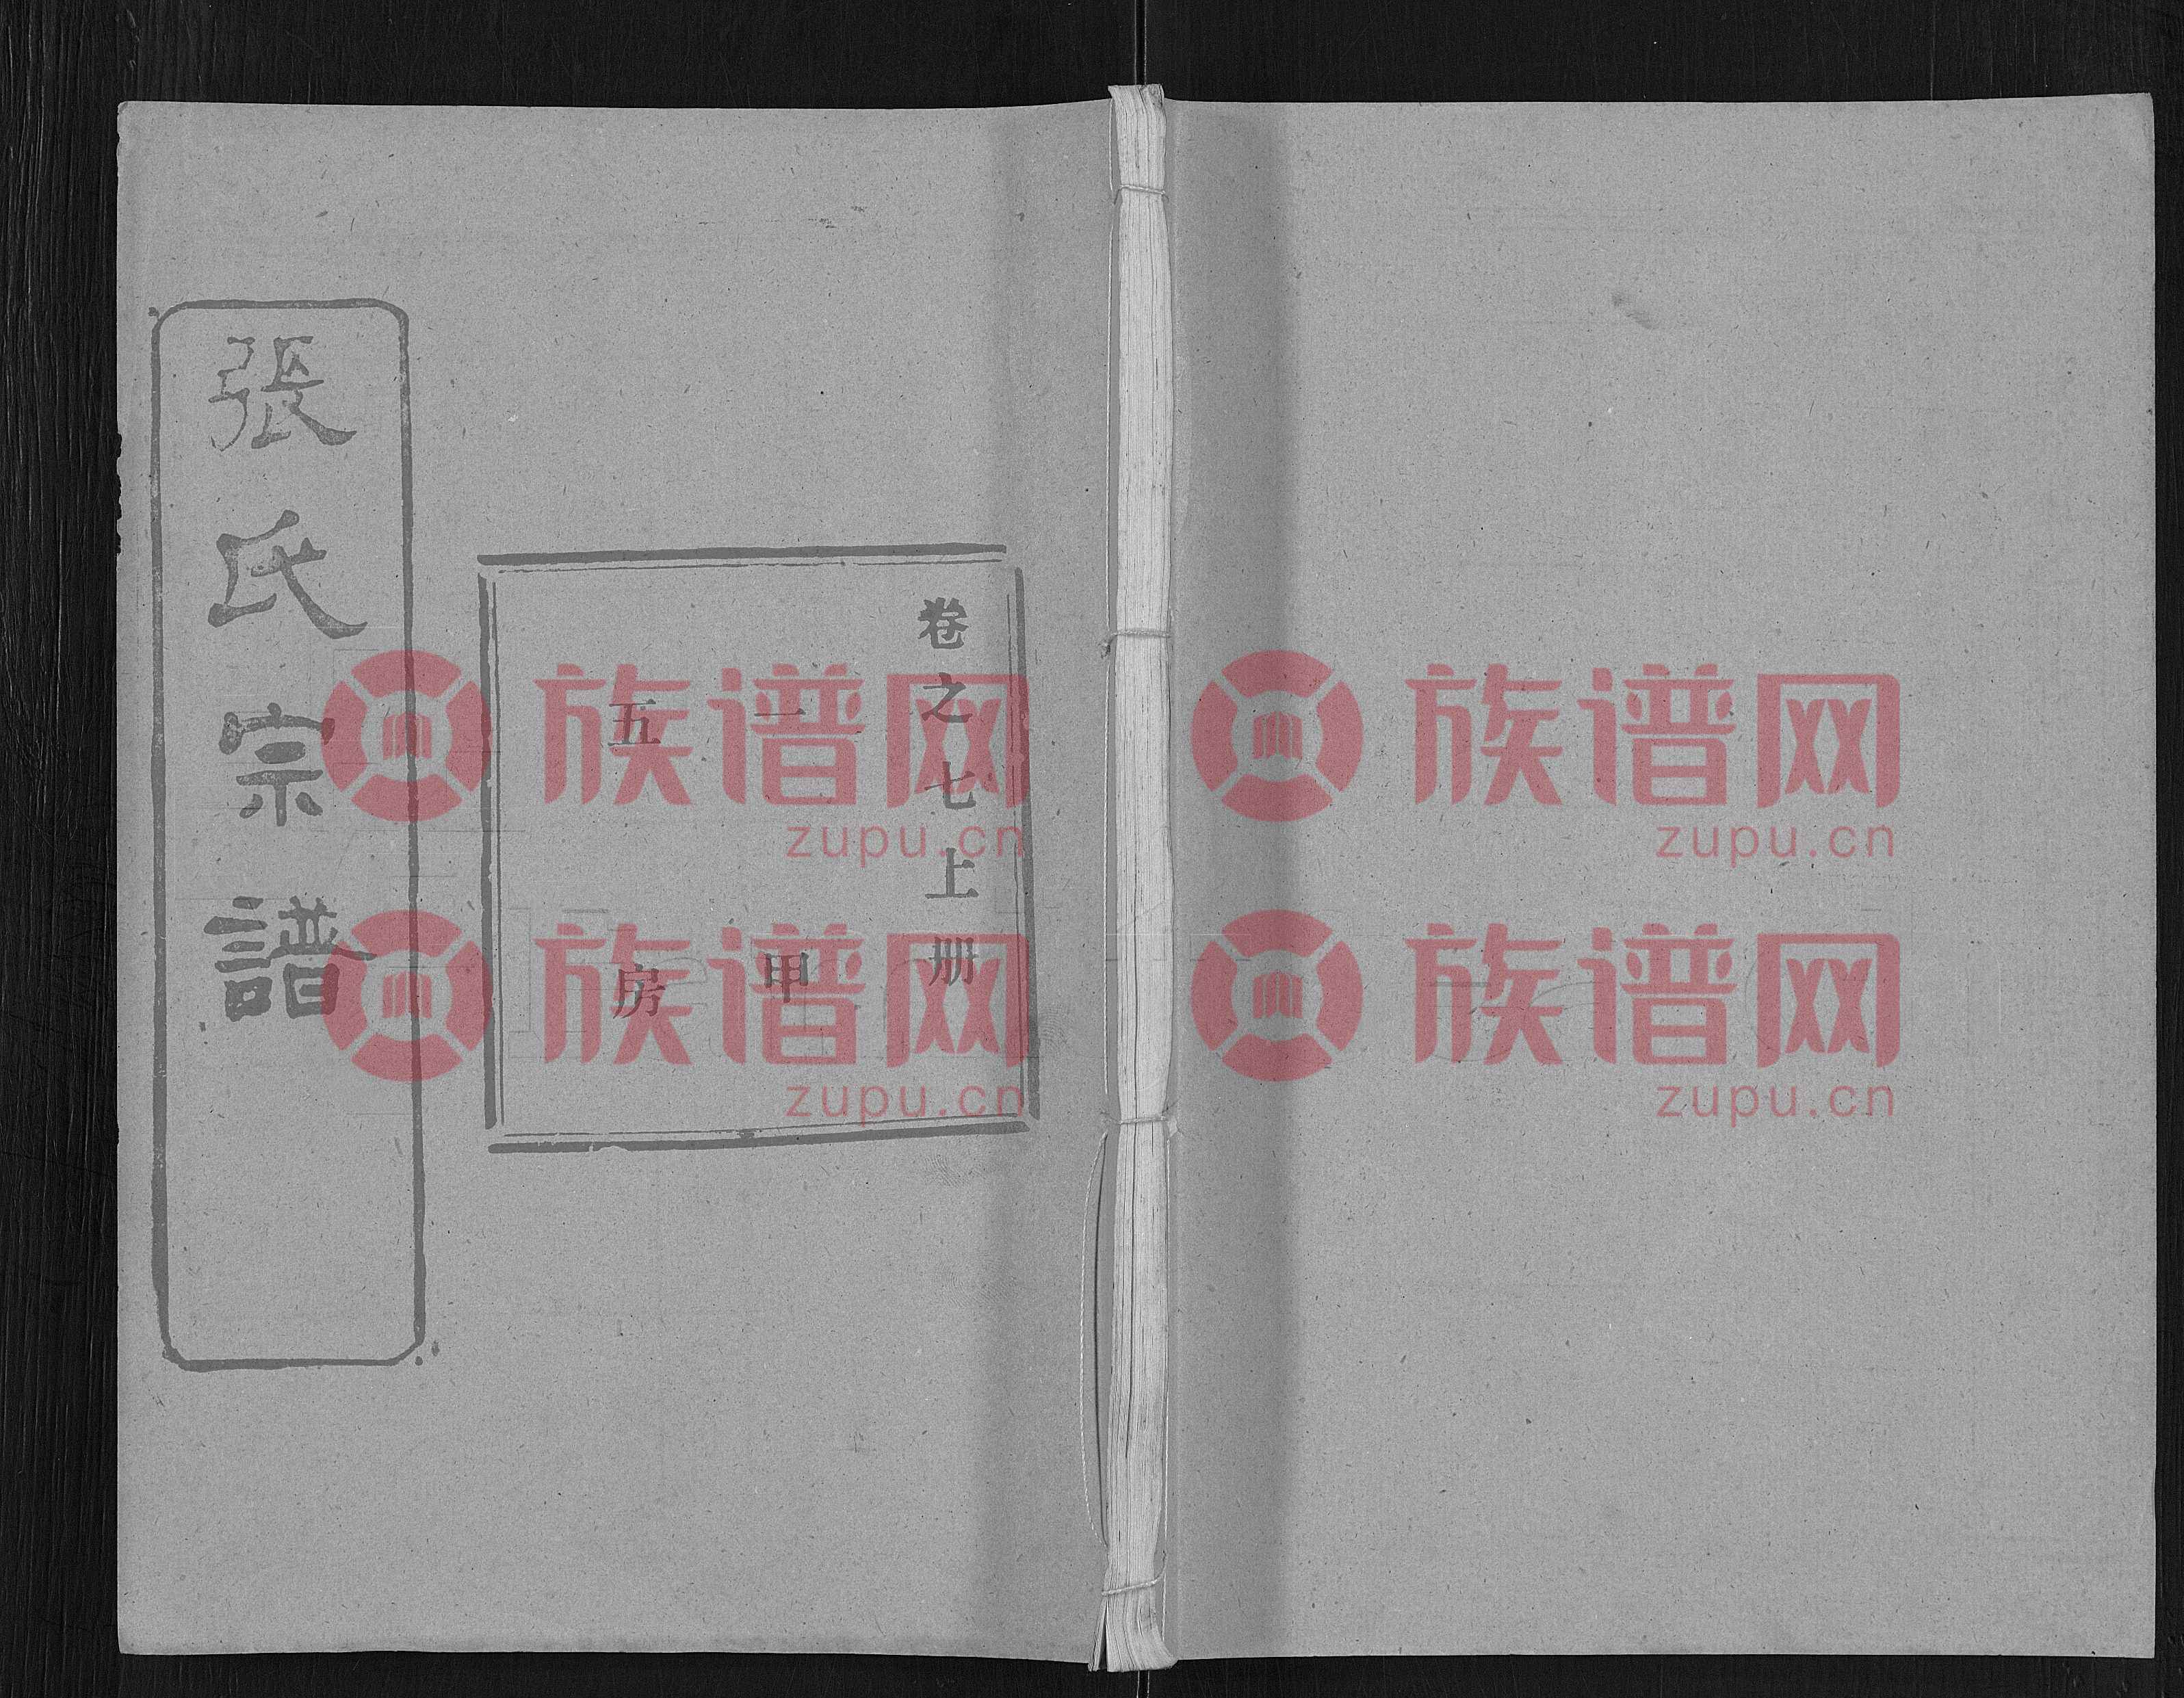 張氏宗譜
卷之七上册
一甲
五房
族谱网
zupu.cn
族谱网
zupu.cn
族谱网
zupu.cn
族谱网
zupu.cn